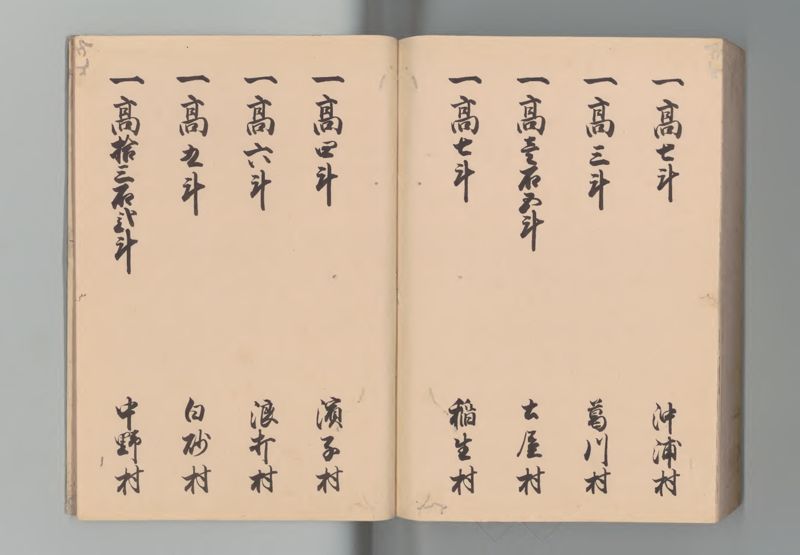 一高七斗 沖浦村
一高三斗 葛川村
一高壱石五斗 土屋村
一高七斗 稲生村
一高四斗 濱子村
一高六斗 浪打村
一高五斗 白砂村
一高拾三石弐斗 中野村